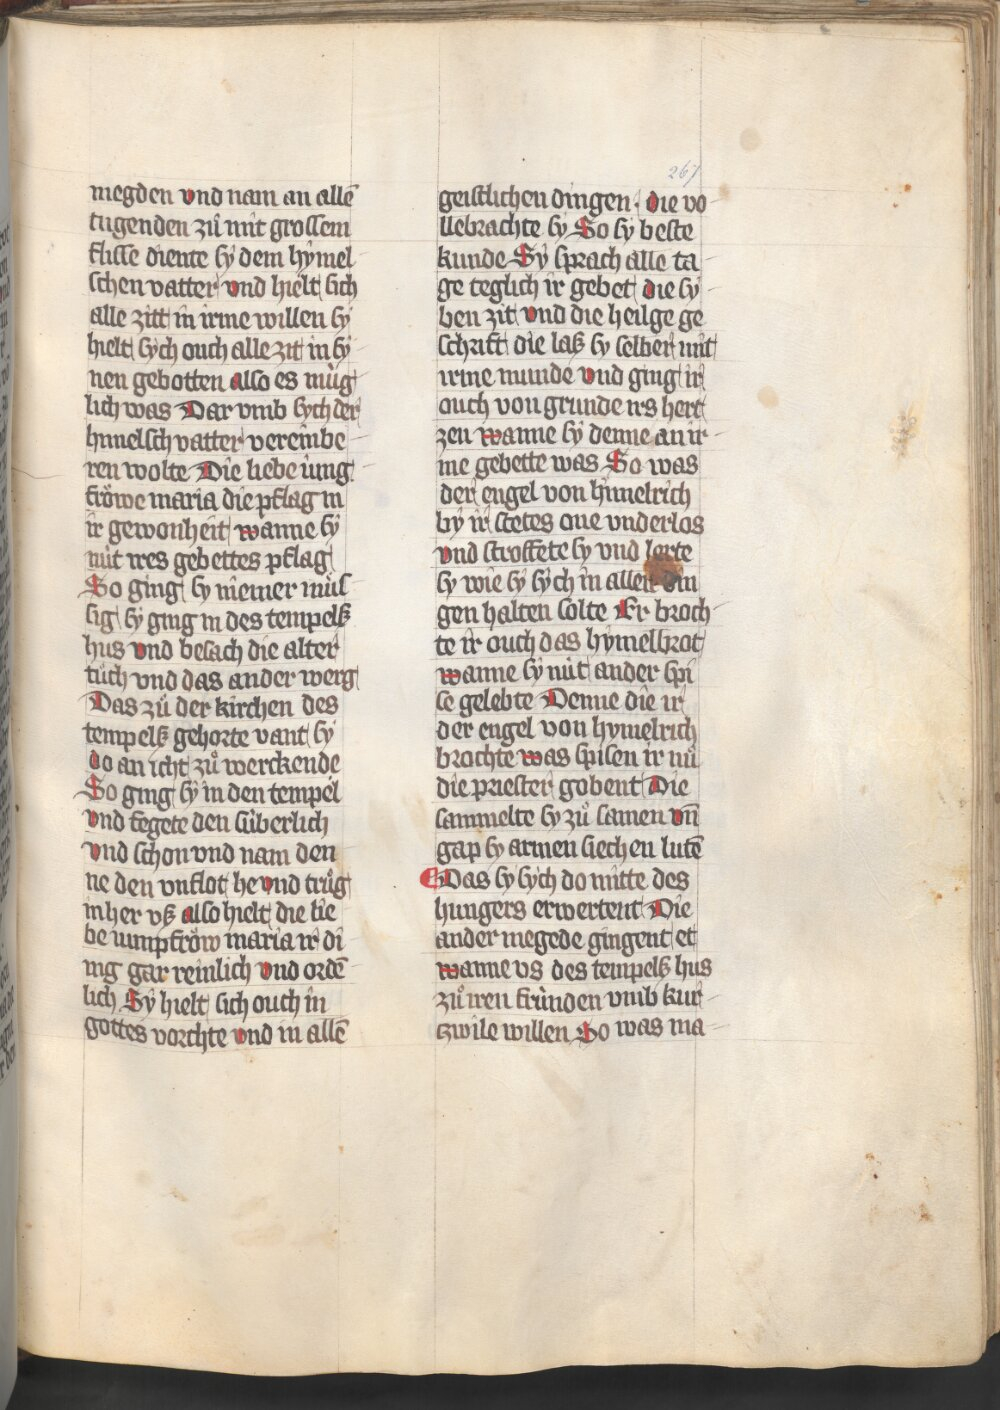 267
megden vnd nam an allē
tugenden zuͦ mit grossem
flisse diente sy dem hymel
schen vatter vnd hielt sich
alle zitt in irme willen sy
hielt sych ouch alle zit in sy
nen gebotten also es muͤg
lich was Dar vmb sych der
himelsch vatter vereinbe
ren wolte Die liebe iung
froͮwe maria die pflag in
ir gewonheit wanne sy
nüt ires gebettes pflag
So ging sy niemer müs
sig sy ging in des tempelß
hus vnd besach die alter
tuͤch vnd das ander werg
Das zuͦ der kirchen des
tempelß gehorte vant sy
do an icht zuͦ werckende
So ging sy in den tempel
vnd fegete den süberlich
vnd schon vnd nam den
ne den vnflot he vnd truͦg
in her vß also hielt die lie
be iumpfroͮw maria ir di
ing gar reinlich vnd ordē
lich Sy hielt sich ouch in
gottes vorchte vnd in allē
geistlichen dingen · die vo
llebrachte sy So sy beste
kunde Sy sprach alle ta
ge teglich ir gebet die sy
ben zit vnd die heilge ge
schrift die laß sy selber mit
irme munde vnd ging ir
ouch von grunde irs hert
zen wanne sy denne an ir
me gebette was So was
der engel von himelrich
by ir stetes one vnderlos
vnd stroffete sy vnd lerte
sy wie sy sych in allen din
gen halten solte Er broch
te ir ouch das hymelbrot
wanne sy nüt ander spi
se gelebte Denne die ir
der engel von hymelrich
brochte was spisen ir nuͦ
die priester gobent Die
sammelte sy zuͦ samen vn̄
gap sy armen siechen lutē
Das sy sych do mitte des
hungers erwertent Die
ander megede gingent et
wanne vs des tempelß hus
zuͦ iren fründen vmb kur
tzwile willen So was ma